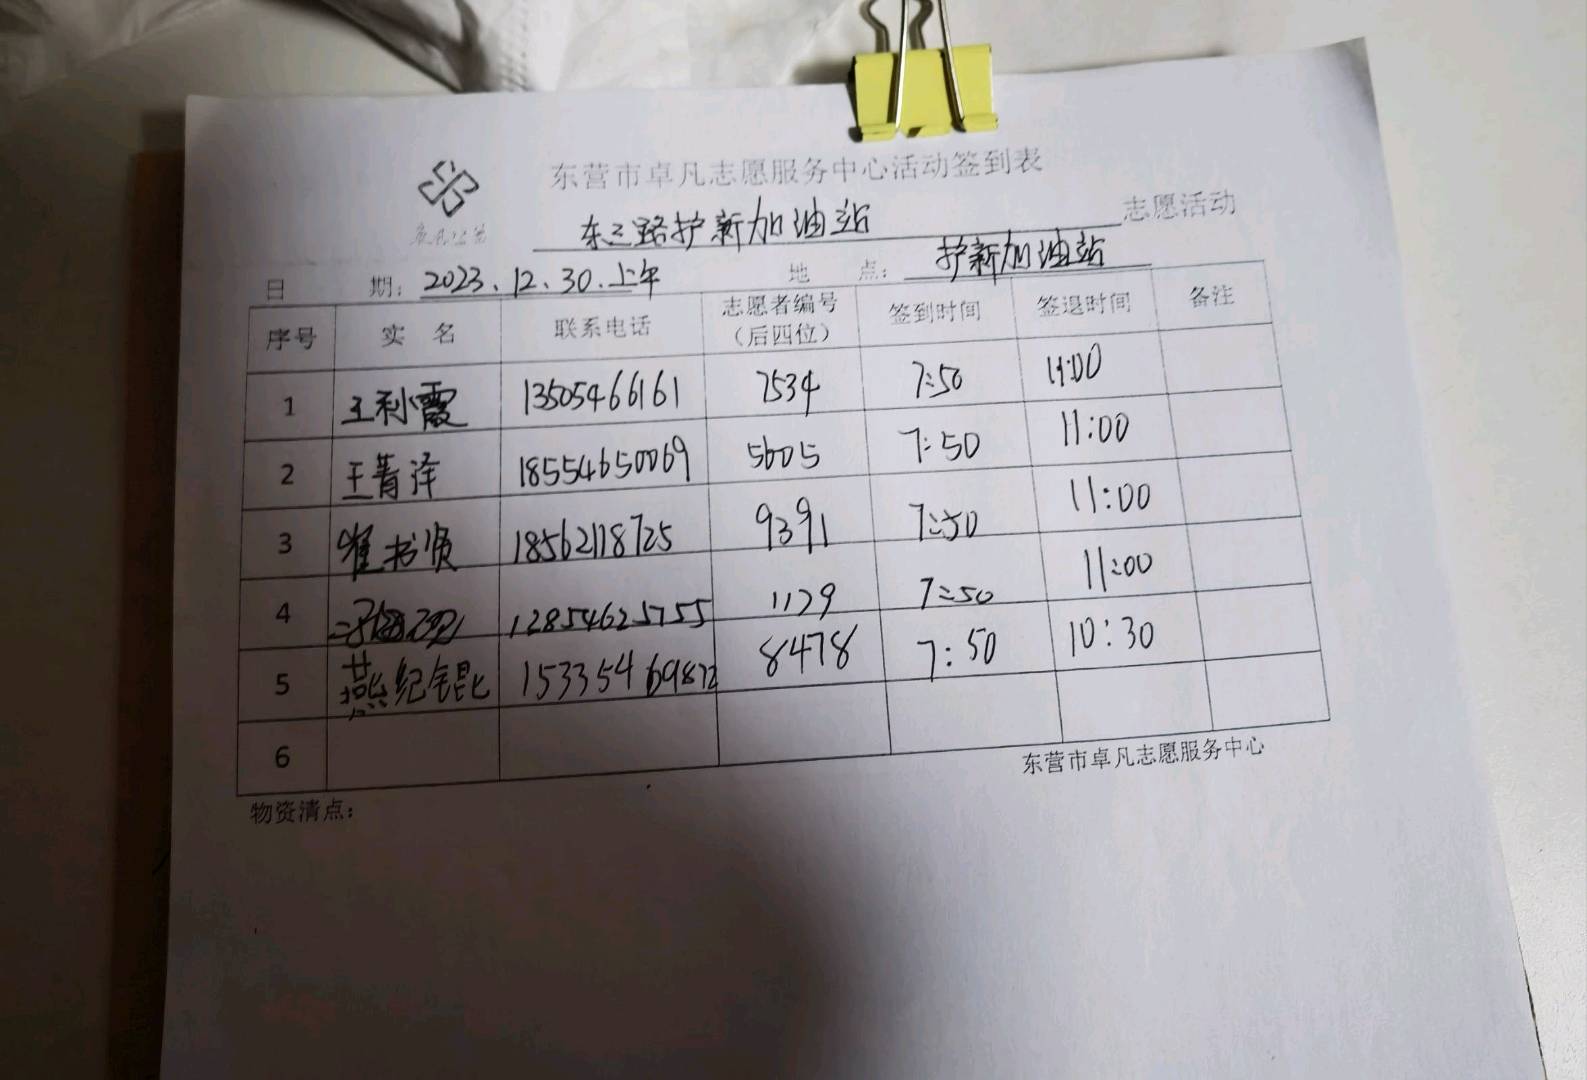 东营市卓凡志愿服务中心活动签到表
东三路护新加油站 志愿活动
日 期: 2023.12.30.上午 地 点: 护新加油站
序号 实 名 联系电话 志愿者编号(后四位) 签到时间 签退时间 备注
1 王利霞 13505466161 7534 7:50 11:00
2 王菁泽 18554650069 5605 7:50 11:00
3 崔书贤 18562118725 9391 7:50 11:00
4 12854625755 1129 7:50 11:00
5 燕纪锟 15335469872 8478 7:50 10:30
6
东营市卓凡志愿服务中心
物资清点: